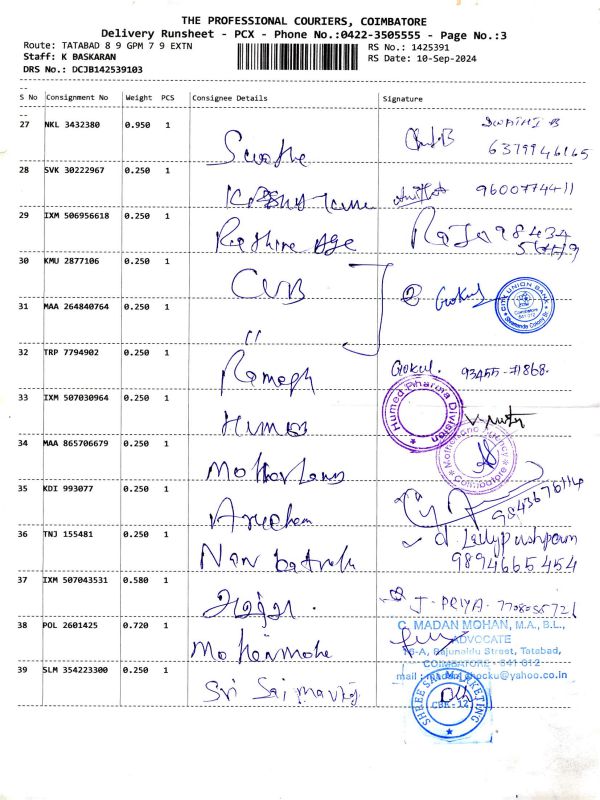 THE PROFESSIONAL COURIERS, COIMBATORE
Delivery Runsheet - PCX - Phone No.:0422-3505555 - Page No.:3
Route: TATABAD 8 9 GPM 7 9 EXTN
RS No.: 1425391
Staff: K BASKARAN
RS Date: 10-Sep-2024
DRS No.: DCJB142539103
S No Consignment No Weight PCS Consignee Details Signature
27 NKL 3432380 0.950 1
28 SVK 30222967 0.250 1
9600774411
29 IXM 506956618 0.250 1
Raja 98434
30 KMU 2877106 0.250 1 CUB
Gokul
CITY UNION BANK
Coimbatore
31 MAA 264840764 0.250 1 "
32 TRP 7794902 0.250 1 Ramesh
Gokul. 93455-71868.
33 IXM 507030964 0.250 1 Humed
Humed Pharma Division
34 MAA 865706679 0.250 1 Motherland
Coimbatore
35 KDI 993077 0.250 1
9843676114
36 TNJ 155481 0.250 1
d. Lillypushpam
9894665454
37 IXM 507043531 0.580 1
J-PRIYA-
38 POL 2601425 0.720 1
C. MADAN MOHAN, M.A., B.L.,
ADVOCATE
Rajunaidu Street, Tatabad,
COIMBATORE - 641 012
39 SLM 354223300 0.250 1 Sri Sai
SHREE SAI MARKETING
CBE-12